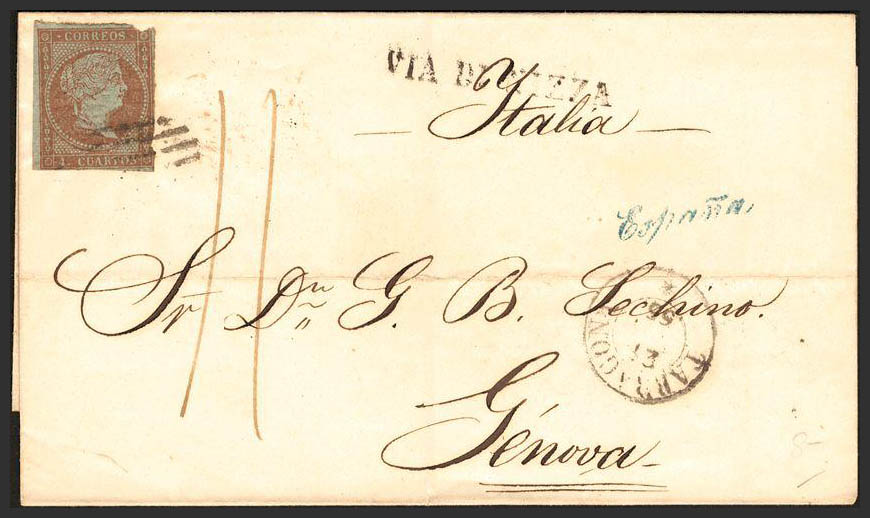 CORREOS
4 CUARTOS
VIA DI NIZZA
Italia
España
11
Sr Dn G. B. Sechino.
TARRAGONA
13
Génova